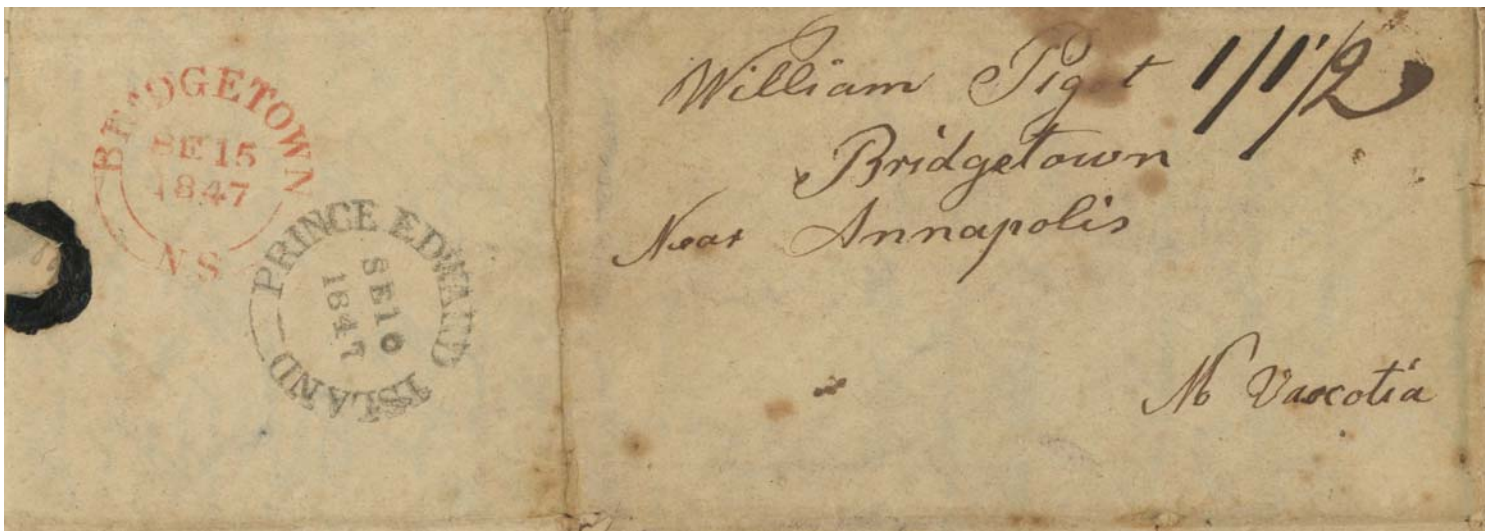 BRIDGETOWN
SE 15
1847
N S
PRINCE EDWARD ISLAND
SE 10
1847
William Pigot 1/1 1/2
Bridgetown
Near Annapolis
No Vascotia